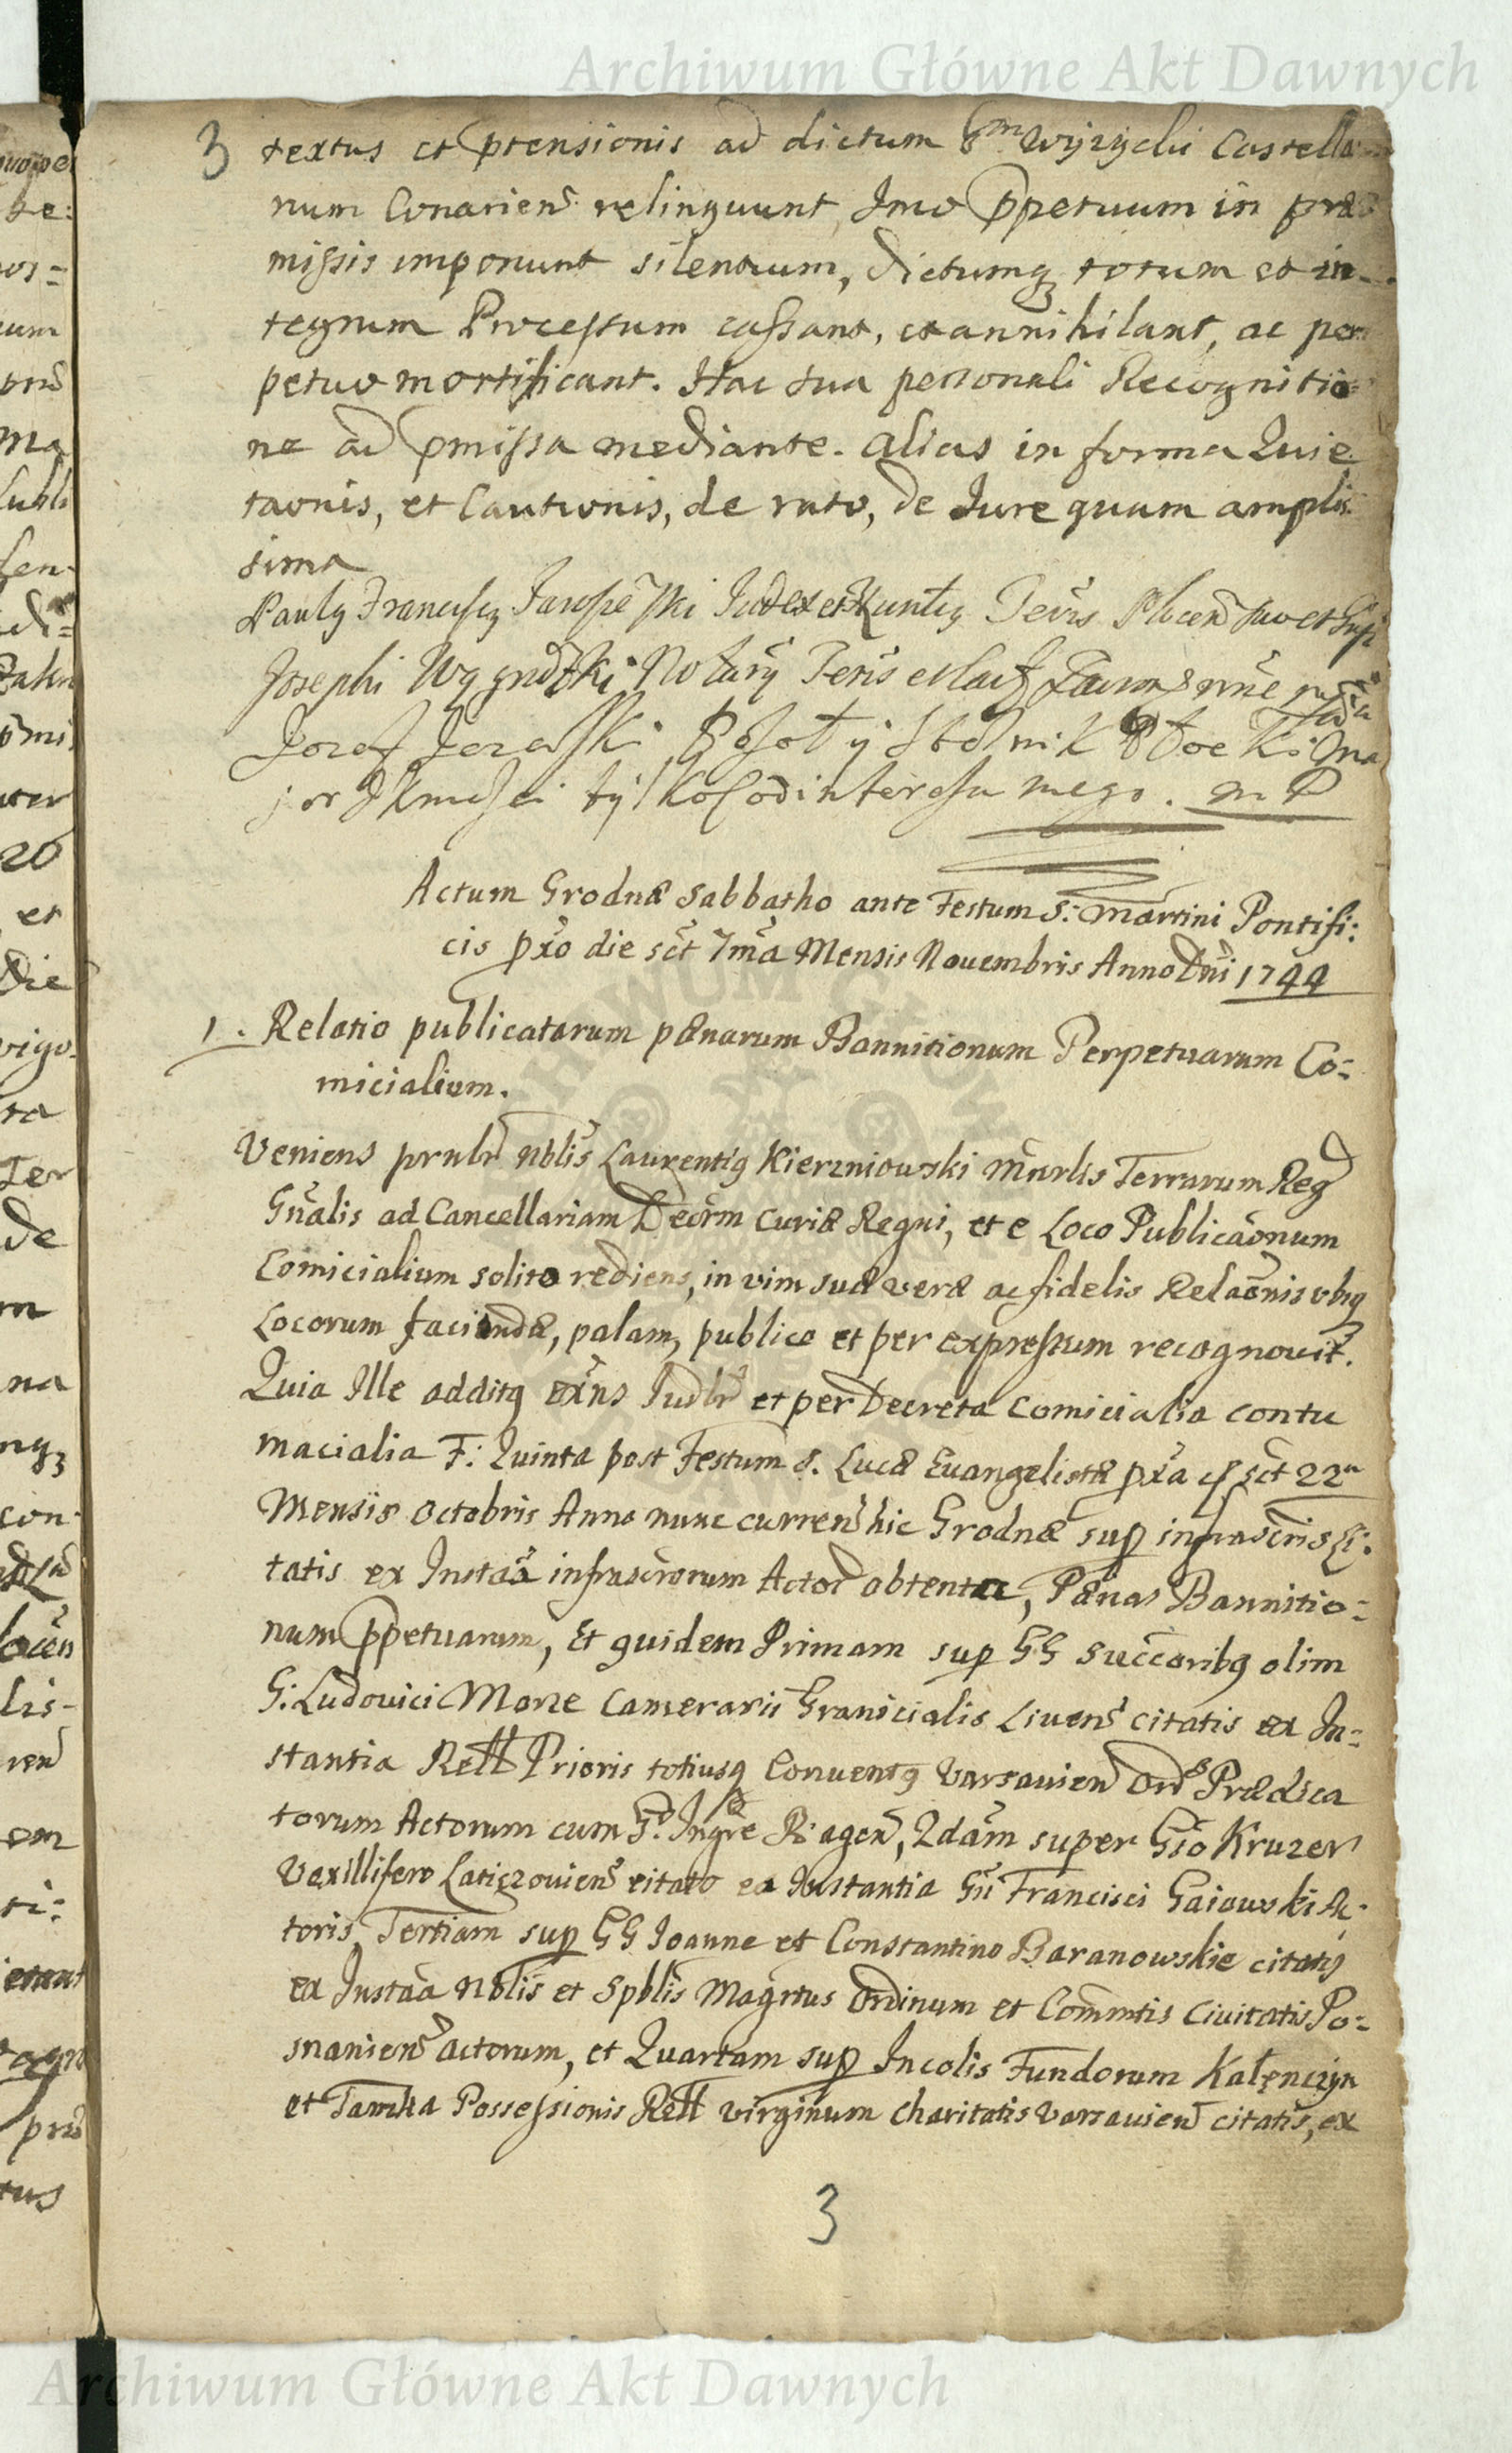 Archiwum Główne Akt Dawnych
3 textus et ptensionis ad dictum Gm Wyżycki Castella
num Conarien relinquunt, Imo ppetuum in præ
missis imponunt silentium, dictumq totum et in-
tegrum Processum cassant, et annihilant, ac per
petuo mortificant. Hac sua personali Recognitio
ne ad pmissa mediante. alias in forma Quie
taonis, et Cautionis, de rato, de Jure quam amplis
sima
Pauly Francisq Judex et Teris Plocen suo et
Josephi Notarij Teris
Jozef Jezewski Stolnik Płocki
tylko od interessu mego. m P
Actum Grodnæ Sabbatho ante Festum S: Martini Pontifi:
cis pxo die sct 7ma Mensis Novembris Anno Dni 1744
1. Relatio publicatarum pænarum Bannitionum Perpetuarum Co=
micialium.
Veniens prnlr nblis Laurentiq Kierzniowski Mnrlis Terrarum Reg
Gnalis ad Cancellariam Decrm Curiæ Regni, et e Loco Publicaonum
Comicialium solito rediens, in vim suæ veræ ac fidelis Relaonis vbiq
Locorum faciendæ, palam, publice et per expressum recognovit.
Quia Ille additq exns Judlr et per Decreta Comicialia contu
macialia F: Quinta post Festum S. Lucæ Evangelistæ pxa sct 22a
Mensis Octobris Anno nunc curren hic Grodnæ sup infrascris Ci:
tatis ex Instaa infrascrorum Actor obtentæ, Pænas Bannitio=
num ppetuarum, Et quidem Primam sup GG Succoribq olim
G: Ludovici Morze Camerarii Granicialis Livens citatis ex In=
stantia Rell Prioris totiusq Conventq Varsavien Ords Prædica
torum Actorum cum Ingre R agen, 2dam super Gso Kruzer
Vexillifero Laticzoviens citato ex Instantia Gn Francisci Gaiowski Ac:
toris, Tertiam sup GG Joanne et Constantino Baranowskie citatq
ex Instaa Nblis et Spblis Magrtus Ordinum et Commtis Civitatis Po=
snaniens actorum, et Quartam sup Incolis Fundorum Kałęnczyn
et Tamka Possessionis Rell Virginum Charitatis Varsavien citatis, ex
3
Archiwum Główne Akt Dawnych